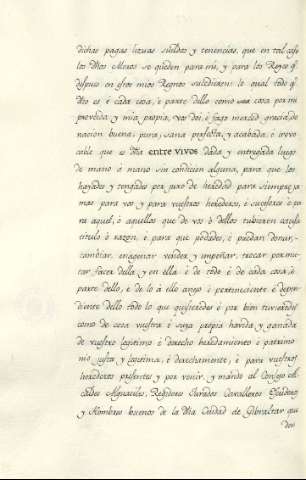 dichas pagas lievas sueldos y tenencias, que en tal caso
los dhos Moros se queden para mi, y para los Reyes q.e
despues en estos mios Regnos succedieren: lo qual todo q.e
dho es è cada cosa, è parte dello como cosa por mi
proveida y mia propia, vos doi, è fago merced gracia, do
nacion buena, pura, sana perfecta, y acabada, è irevo
cable que es dha entre vivos dada y entregada luego
de mano à mano sin condicion alguna, para que los
hayades y tengades por juro de heredad para siempre ja
mas para vos y para vuestros herederos, è sucesores è pa
ra aquel, ò aquellos que de vos ò dellos tubieren causa
titulo ò razon, è para que podades, è puedan donar,
cambiar, enagenar vender y empeñar, trocar permu
tar facer della y en ella è de todo è de cada cosa, è
parte dello, è de lo à ello anejo è pertineciente è depen
diente dello todo lo que quisieredes è por bien tuvieredes
como de cosa vuestra è suya propia havida y ganada
de vuestro legitimo è derecho heredamiento è patrimo
nio justa y legitima, è derechamente, è para vuestros
herederos presentes y por venir, y mando al Consejo Al
caldes Alguaciles, Regidores Jurados Cavalleros Escuderos
y Hombres buenos de la dha Ciudad de Gibraltar que